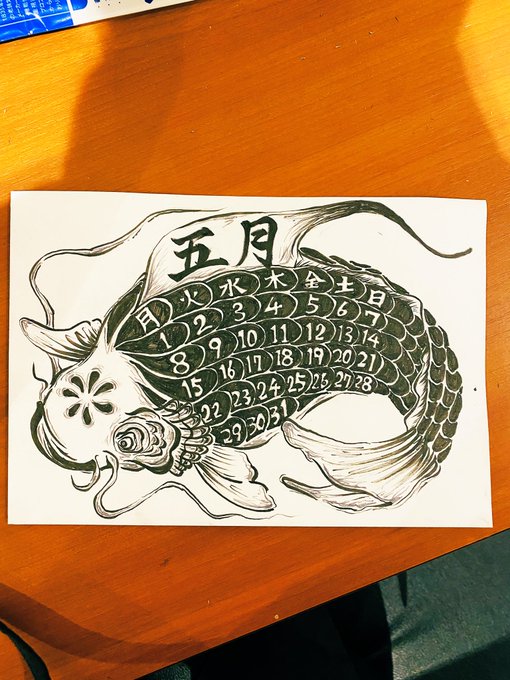 五月
月 火 水 木 金 土 日
1 2 3 4 5 6 7
8 9 10 11 12 13 14
15 16 17 18 19 20 21
22 23 24 25 26 27 28
29 30 31